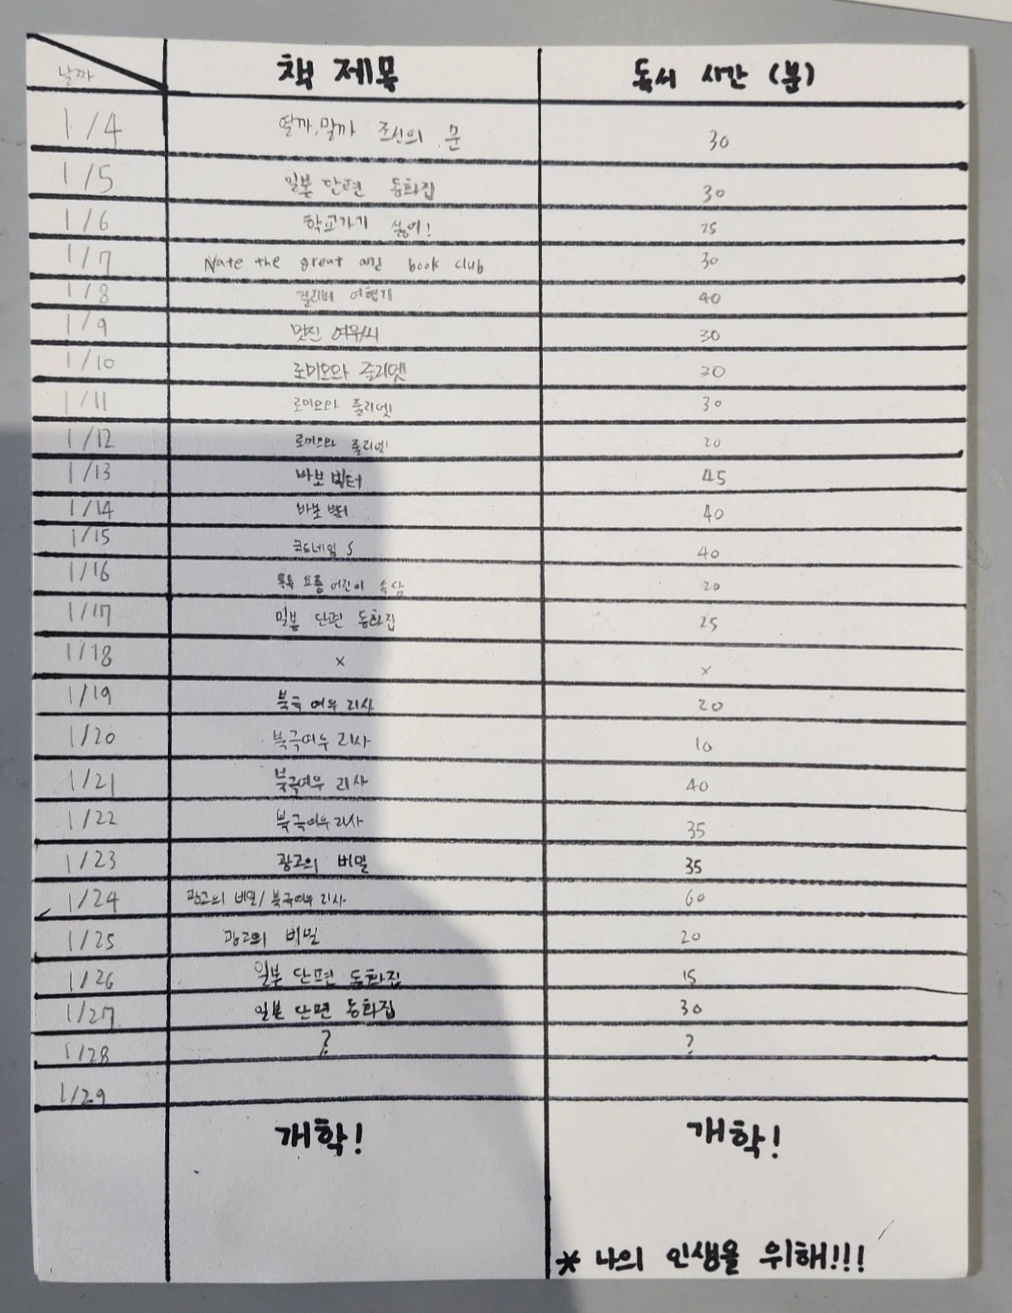 날짜 책 제목 독서 시간 (분)
1/4 열까, 말까 조선의 문 30
1/5 일본 단편 동화집 30
1/6 학교가기 싫어! 25
1/7 Nate the great and book club 30
1/8 걸리버 여행기 40
1/9 멋진 여우씨 30
1/10 로미오와 줄리엣 30
1/11 로미오와 줄리엣 30
1/12 로미오와 줄리엣 20
1/13 바보 빅터 45
1/14 바보 빅터 40
1/15 코드네임 S 40
1/16 요릉 어린이 속담 20
1/17 일본 단편 동화집 25
1/18 x x
1/19 북극 여우 리사 20
1/20 북극여우 리사 10
1/21 북극여우 리사 40
1/22 북극여우 리사 35
1/23 광고의 비밀 35
1/24 광고의 비밀/북극여우 리사 60
1/25 광고의 비밀 20
1/26 일본 단편 동화집 15
1/27 일본 단편 동화집 30
1/28 ? ?
1/29
개학! 개학!
* 나의 인생을 위해!!!